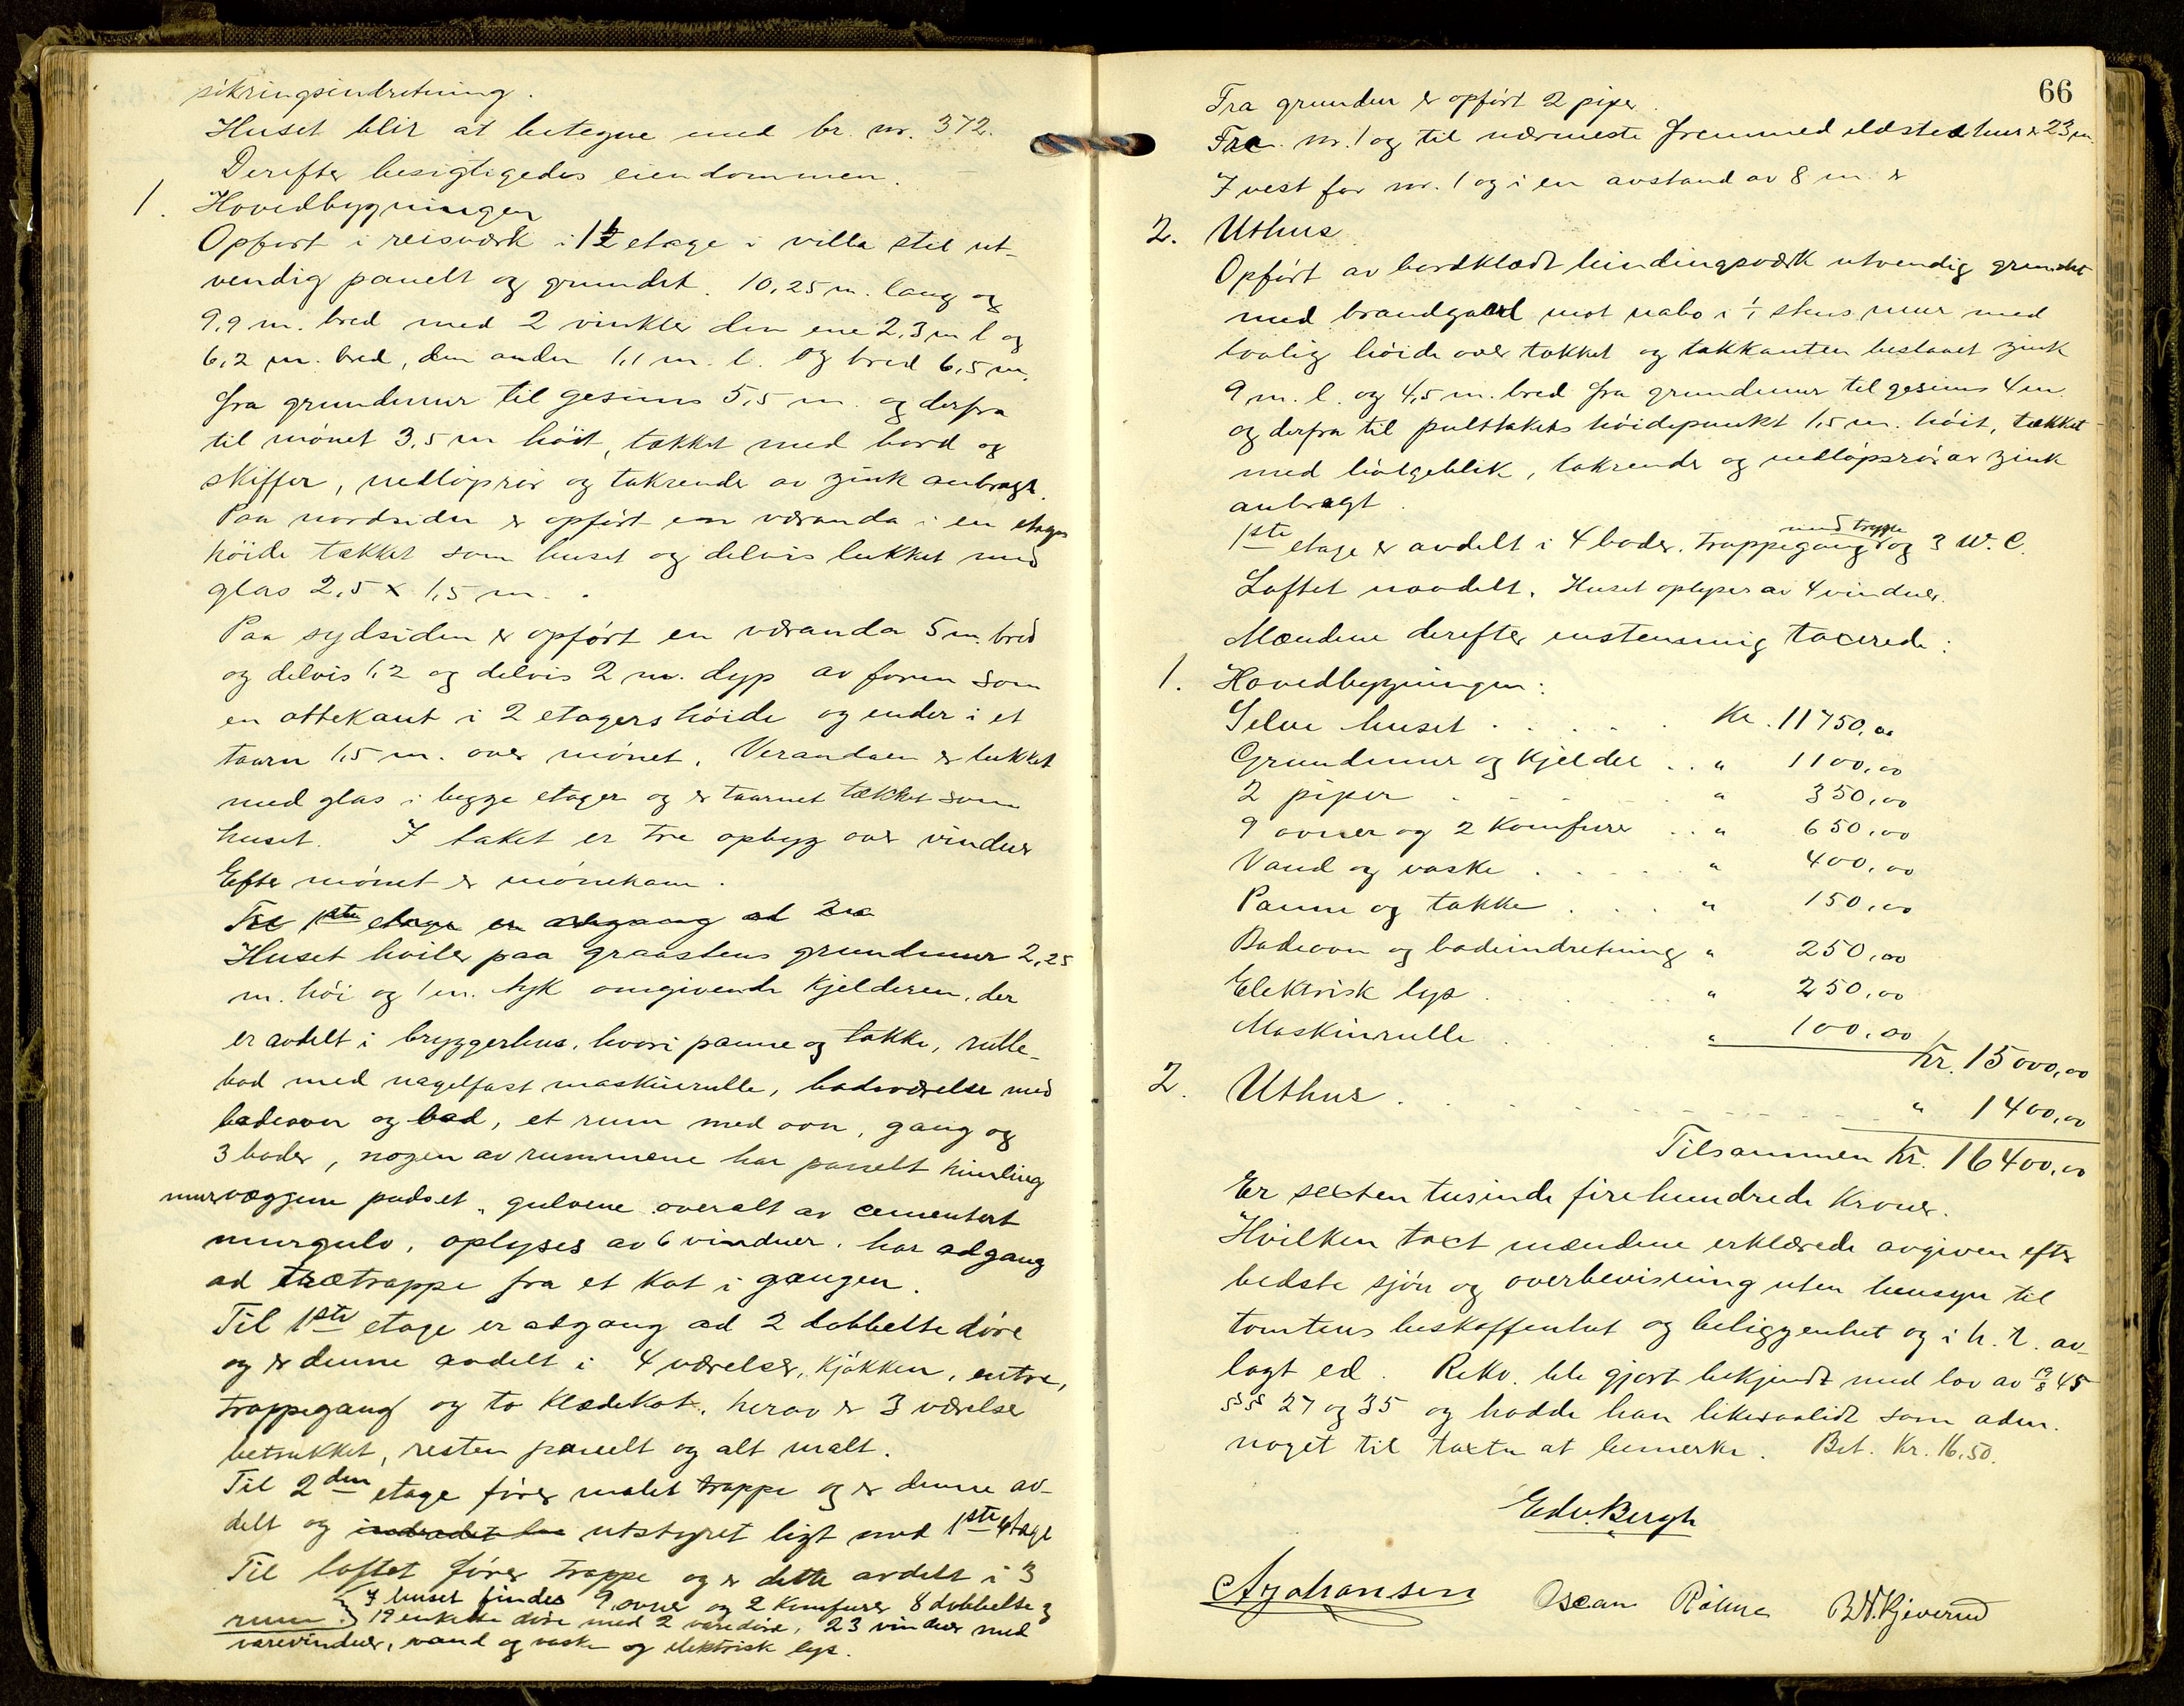 sikringsindretning.
Huset blir at betegne med br. nr. 372.
Derefter besigtigedes eiendommen.
1. Hovedbygningen
Opført i reisverk i 1 1/2 etage i villa stil ut-
vendig panelt og grundet. 10,25 m. lang og
9,9 m. bred med 2 vinkler den ene 2,3 m l og
6,2 m. bred, den anden 1,1 m. l. og bred 6,5 m.
fra grundmur til gesims 5,5 m. og derfra
til mønet 3,5 m høit, tækket med bord og
skiffer, nedløpsrør og takrender av zink anbragt.
Paa nordsiden er opført en veranda i en etages
høide tækket som huset og delvis lukket med
glas 2,5 x 1,5 m.
Paa sydsiden er opført en veranda 5 m. bred
og delvis 1,2 og delvis 2 m. dyp av form som
en ottekant i 2 etagers høide og ender i et
taarn 1,5 m. over mønet. Verandaen er lukket
med glas i begge etager og er taarnet tækket som
huset. I taket er tre opbyg over vinduer
Efter mønet er mønekam.
Til 1ste etage er adgang ad 2
Huset hviler paa graastens grundmur 2,25
m. høi og 1 m. tyk omgivende kjelderen, der
er avdelt i bryggerhus, hvori panne og takke, rulle-
bod med nagelfast maskinrulle, badeværelse med
badeovn og bad, et rum med ovn, gang og
3 boder, nogen av rummene har panelt himling
murvæggene pudset, gulvene overalt av cementert
murgulv, oplyses av 6 vinduer, har adgang
ad trætrappe fra et kot i gangen.
Til 1ste etage er adgang ad 2 dobbelte døre
og er denne avdelt i 4 værelser, kjøkken, entre,
trappegang og to klædekot, herav er 3 værelse
betrukket, resten panelt og alt malt.
Til 2den etage fører malet trappe og er denne av-
delt og indredet utstyret ligt med 1ste etage
Til loftet fører trappe og er dette avdelt i 3
rum. I huset findes 9 ovner og 2 komfurer 8 dobbelte og
19 enkelte døre med 2 varedøre, 23 vinduer med
varevinduer, vand og vaske og elektrisk lys.
66
Fra grunden er opført 2 piper.
Fra nr. 1 og til nærmeste fremmed ildstedshus er 23 m.
I vest for nr. 1 og i en avstand av 8 m. er
2. Uthus
Opført av bordklædt bindingsverk utvendig grundet
med brandgavl mot nabo i 1/1 stens mur med
lovlig høide over takket og takkanten beslaaet zink
9 m. l. og 4,5 m. bred fra grundmur til gesims 4 m.
og derfra til pulttakets høidepunkt 1,5 m. høit, tækket
med bølgeblik, takrender og nedløpsrør av zink
anbragt.
1ste etage er avdelt i 4 boder. trappegang med trappe og 3 W.C.
Loftet uavdelt. Huset oplyses av 4 vinduer.
Mændene derefter enstemmig taxerede:
1. Hovedbygningen:
Selve huset . . . . . Kr. 11750,00
Grundmur og kjelder . . " 1100,00
2 piper . . . . . " 350,00
9 ovner og 2 komfurer . . " 650,00
Vand og vaske . . . . . " 400,00
Panne og takke . . . . " 150,00
Badeovn og badeindretning " 250,00
Elektrisk lys . . . . . " 250,00
Maskinrulle . . . . . " 100,00
Kr. 15000,00
2. Uthus . . . . . " 1400,00
Tilsammen Kr. 16400,00
Er sexten tusinde firehundrede kroner.
Hvilken taxt mændene erklærede avgiven efter
bedste sjøn og overbevisning uten hensyn til
tomtens beskaffenhet og beliggenhet og i h. t. av-
lagt ed. Rekv. ble gjort bekjendt med lov av 19/8 45
§§ 27 og 35 og hadde han likesaalidt som adm.
noget til taxten at bemerke. Bet. Kr. 16,50.
Edv. Bergh
A Johansen Oscar B.N. Kjeverud